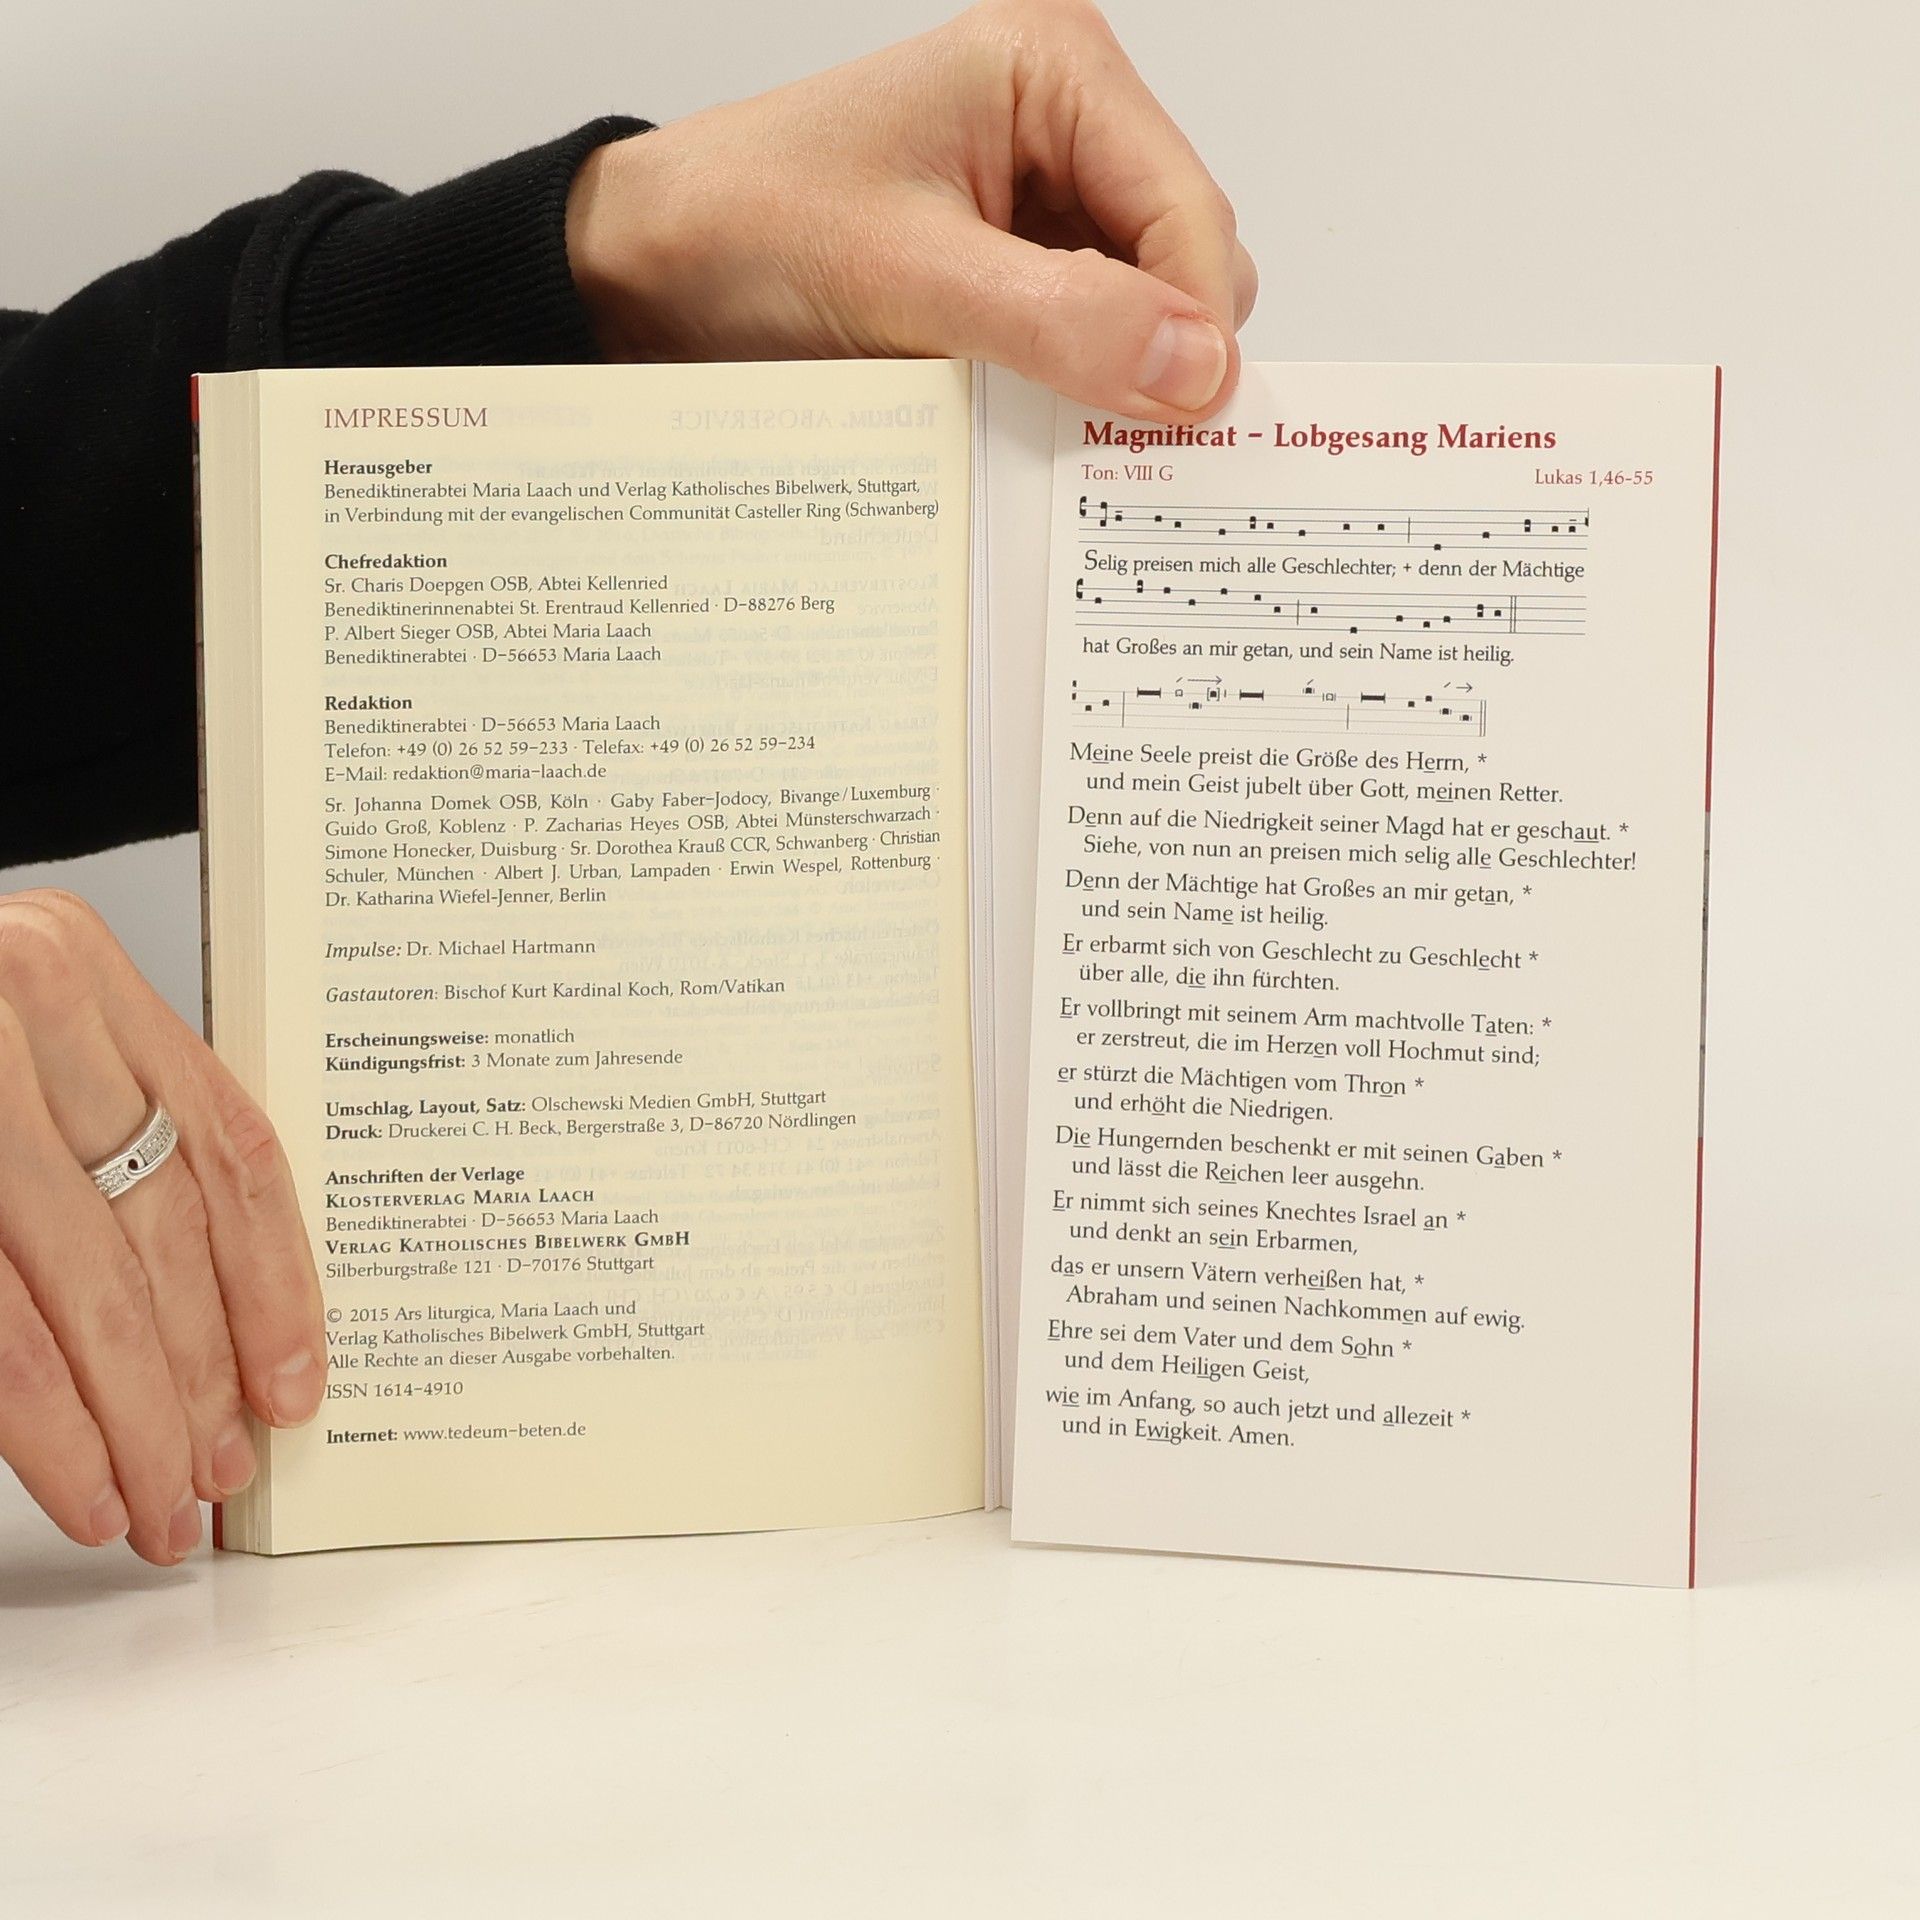 IMPRESSUM
Herausgeber
Benediktinerabtei Maria Laach und Verlag Katholisches Bibelwerk, Stuttgart,
in Verbindung mit der evangelischen Communität Casteller Ring (Schwanberg)
Chefredaktion
Sr. Charis Doepgen OSB, Abtei Kellenried
Benediktinerinnenabtei St. Erentraud Kellenried · D-88276 Berg
P. Albert Sieger OSB, Abtei Maria Laach
Benediktinerabtei · D-56653 Maria Laach
Redaktion
Benediktinerabtei · D-56653 Maria Laach
Telefon: +49 (0) 26 52 59-233 · Telefax: +49 (0) 26 52 59-234
E-Mail: redaktion@maria-laach.de
Sr. Johanna Domek OSB, Köln · Gaby Faber-Jodocy, Bivange/Luxemburg ·
Guido Groß, Koblenz · P. Zacharias Heyes OSB, Abtei Münsterschwarzach ·
Simone Honecker, Duisburg · Sr. Dorothea Krauß CCR, Schwanberg · Christian
Schuler, München · Albert J. Urban, Lampaden · Erwin Wespel, Rottenburg ·
Dr. Katharina Wiefel-Jenner, Berlin
Impulse: Dr. Michael Hartmann
Gastautoren: Bischof Kurt Kardinal Koch, Rom/Vatikan
Erscheinungsweise: monatlich
Kündigungsfrist: 3 Monate zum Jahresende
Umschlag, Layout, Satz: Olschewski Medien GmbH, Stuttgart
Druck: Druckerei C. H. Beck, Bergerstraße 3, D-86720 Nördlingen
Anschriften der Verlage
KLOSTERVERLAG MARIA LAACH
Benediktinerabtei · D-56653 Maria Laach
VERLAG KATHOLISCHES BIBELWERK GMBH
Silberburgstraße 121 · D-70176 Stuttgart
© 2015 Ars liturgica, Maria Laach und
Verlag Katholisches Bibelwerk GmbH, Stuttgart
Alle Rechte an dieser Ausgabe vorbehalten.
ISSN 1614-4910
Internet: www.tedeum-beten.de
Magnificat – Lobgesang Mariens
Ton: VIII G Lukas 1,46-55
Selig preisen mich alle Geschlechter; + denn der Mächtige
hat Großes an mir getan, und sein Name ist heilig.
Meine Seele preist die Größe des Herrn, *
und mein Geist jubelt über Gott, meinen Retter.
Denn auf die Niedrigkeit seiner Magd hat er geschaut. *
Siehe, von nun an preisen mich selig alle Geschlechter!
Denn der Mächtige hat Großes an mir getan, *
und sein Name ist heilig.
Er erbarmt sich von Geschlecht zu Geschlecht *
über alle, die ihn fürchten.
Er vollbringt mit seinem Arm machtvolle Taten: *
er zerstreut, die im Herzen voll Hochmut sind;
er stürzt die Mächtigen vom Thron *
und erhöht die Niedrigen.
Die Hungernden beschenkt er mit seinen Gaben *
und lässt die Reichen leer ausgehn.
Er nimmt sich seines Knechtes Israel an *
und denkt an sein Erbarmen,
das er unsern Vätern verheißen hat, *
Abraham und seinen Nachkommen auf ewig.
Ehre sei dem Vater und dem Sohn *
und dem Heiligen Geist,
wie im Anfang, so auch jetzt und allezeit *
und in Ewigkeit. Amen.